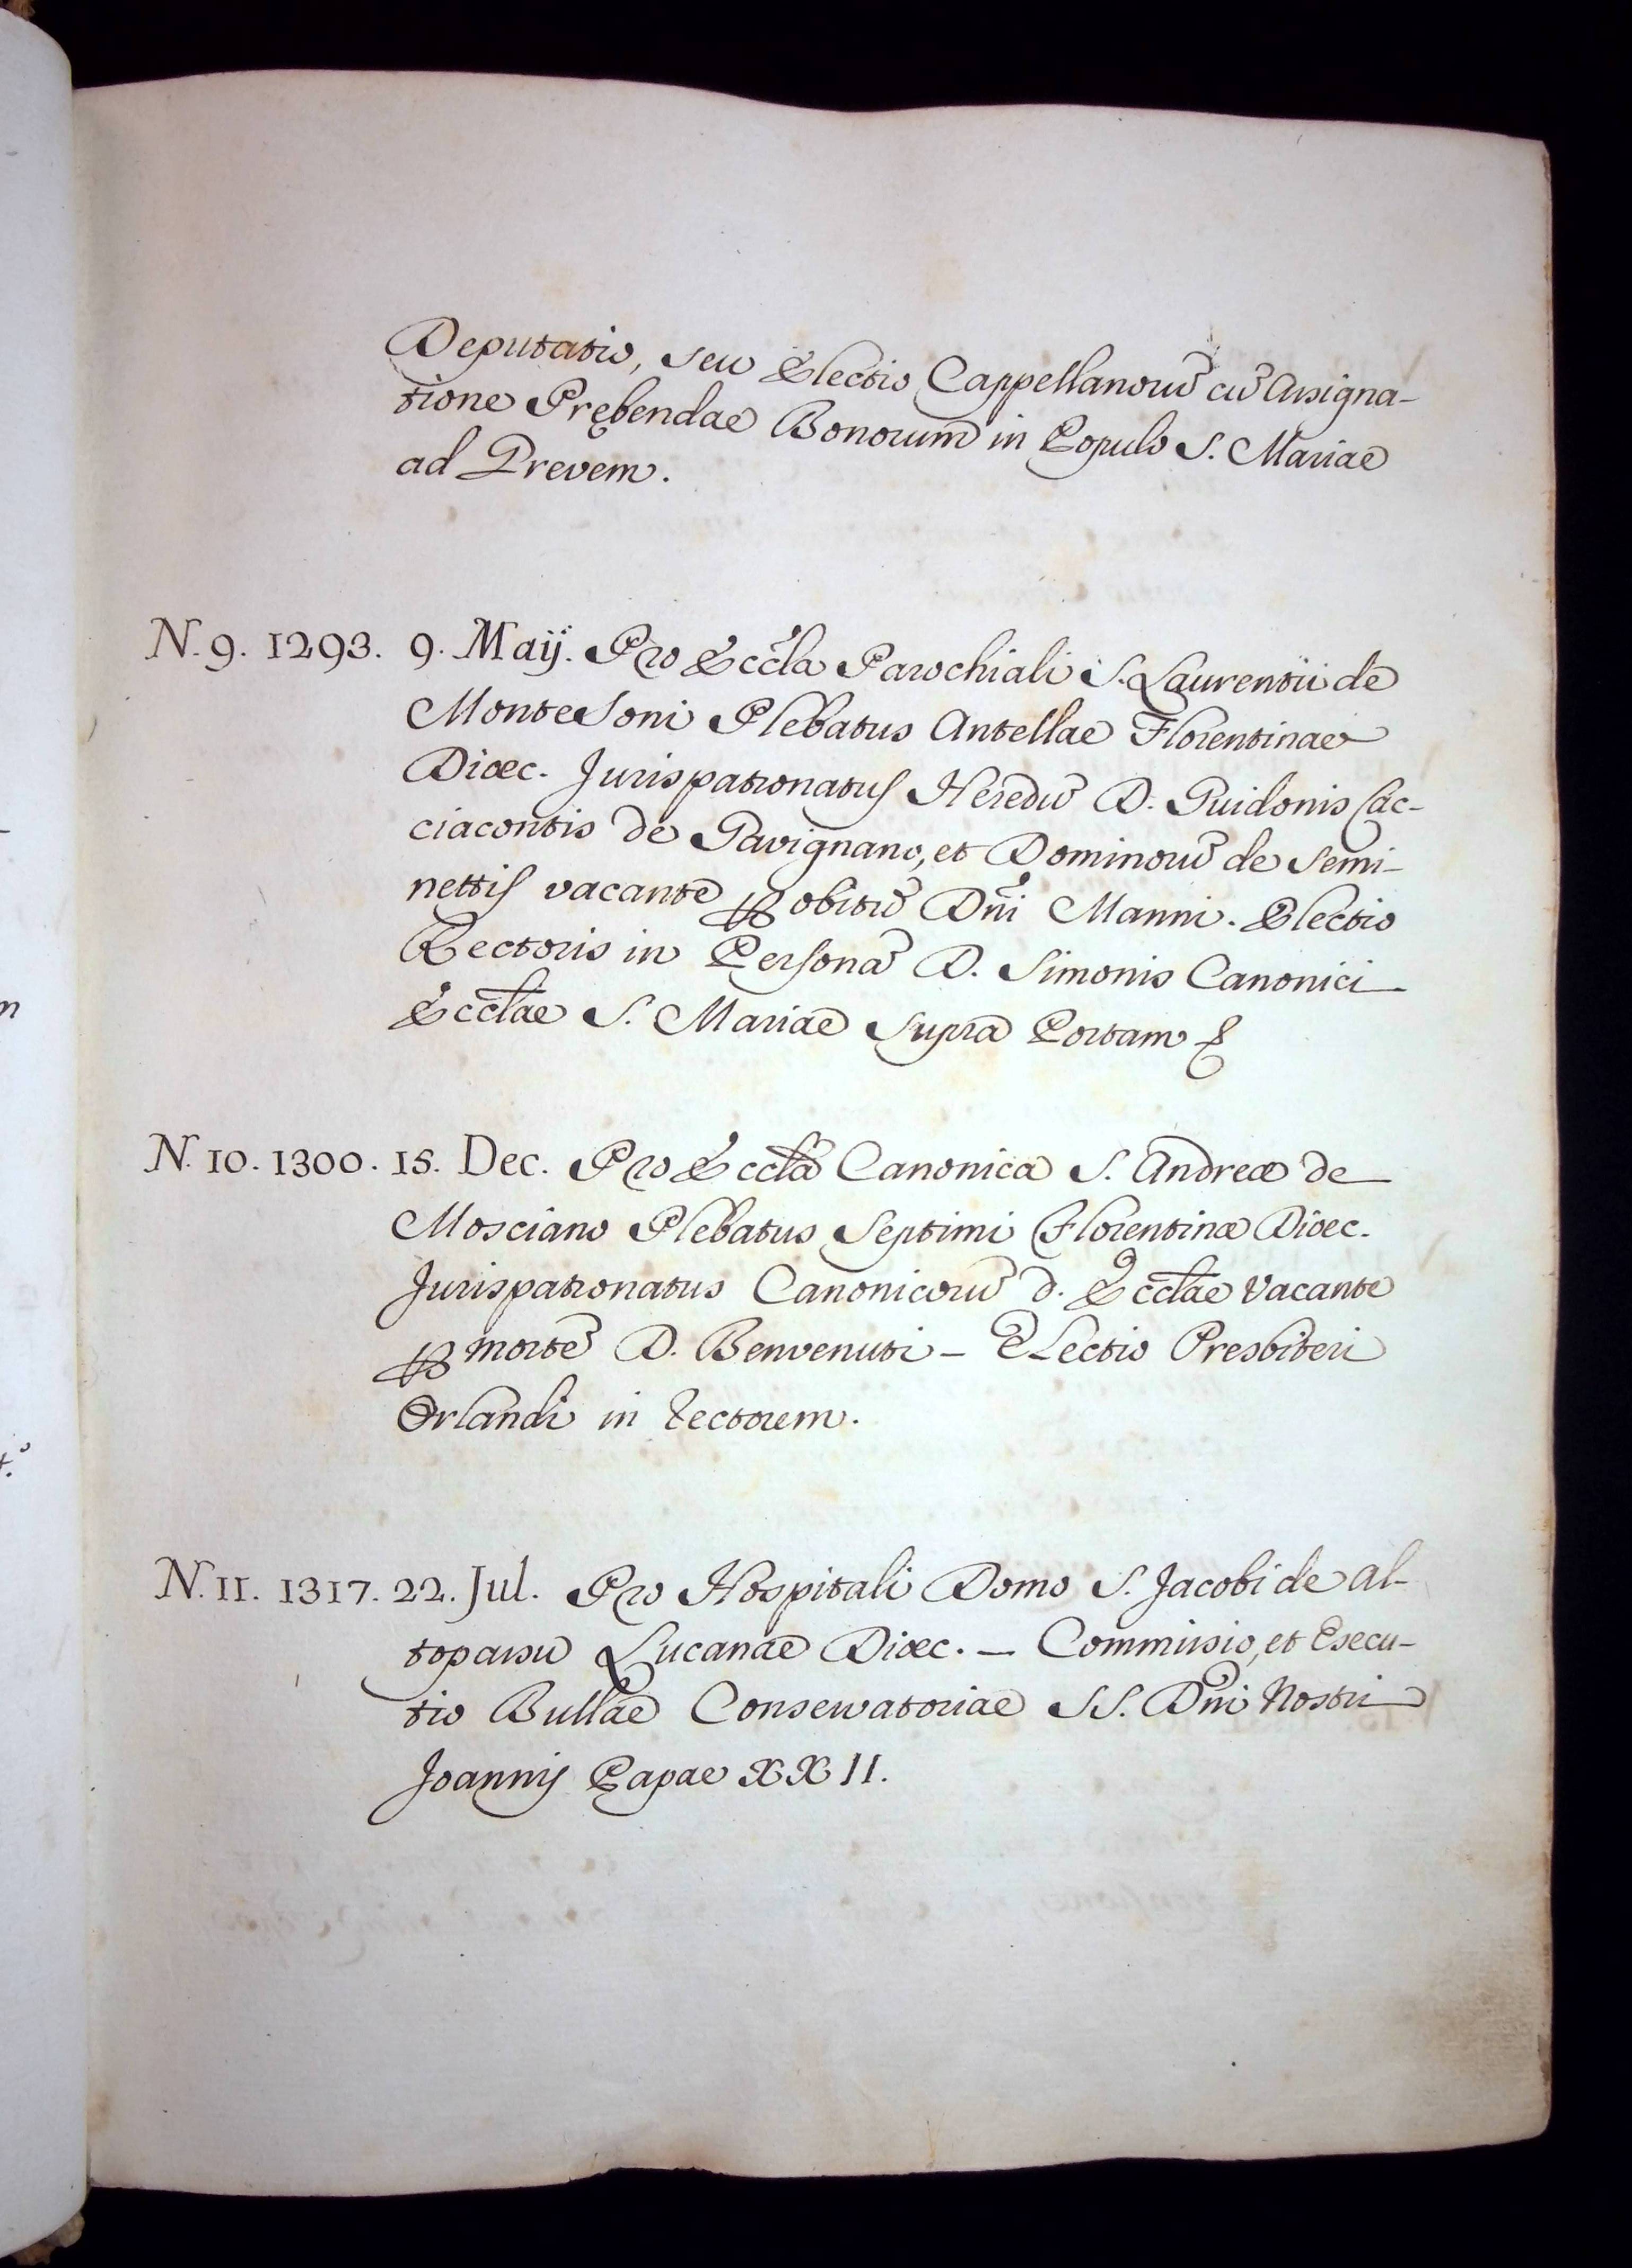 Deputatio, seu Electio Cappellanorū cū Assigna-
tione Prębendae Bonorum in Populo S. Mariae
ad Prevem.
N. 9. 1293. 9. Maij. Pro Eccla Parochiali S. Laurentii de
Montesoni Plebatus Antellae Florentinae
Diœc. Jurispatronatus Heredū D. Guidonis Cac-
ciacontis de Gavignano, et Dominorū de Semi-
nettis vacante ꝑ obitū Dñi Manni. Electio
Rectoris in Personā D. Simonis Canonici
Ecclae S. Mariae supra Portam
N. 10. 1300. 15. Dec. Pro Eccla Canonica S. Andreæ de
Mosciano Plebatus Septimi Florentinæ Diœc.
Jurispatronatus Canonicorū d. Ecclae vacante
ꝑ mortē D. Benvenuti – Electio Presbiteri
Orlandi in Rectorem.
N. 11. 1317. 22. Jul. Pro Hospitali Domo S. Jacobi de Al-
topassu Lucanae Diœc. – Commissio, et Esecu-
tio Bullae Conservatoriae SS. Dñi Nostri
Joannis Papae XXII.